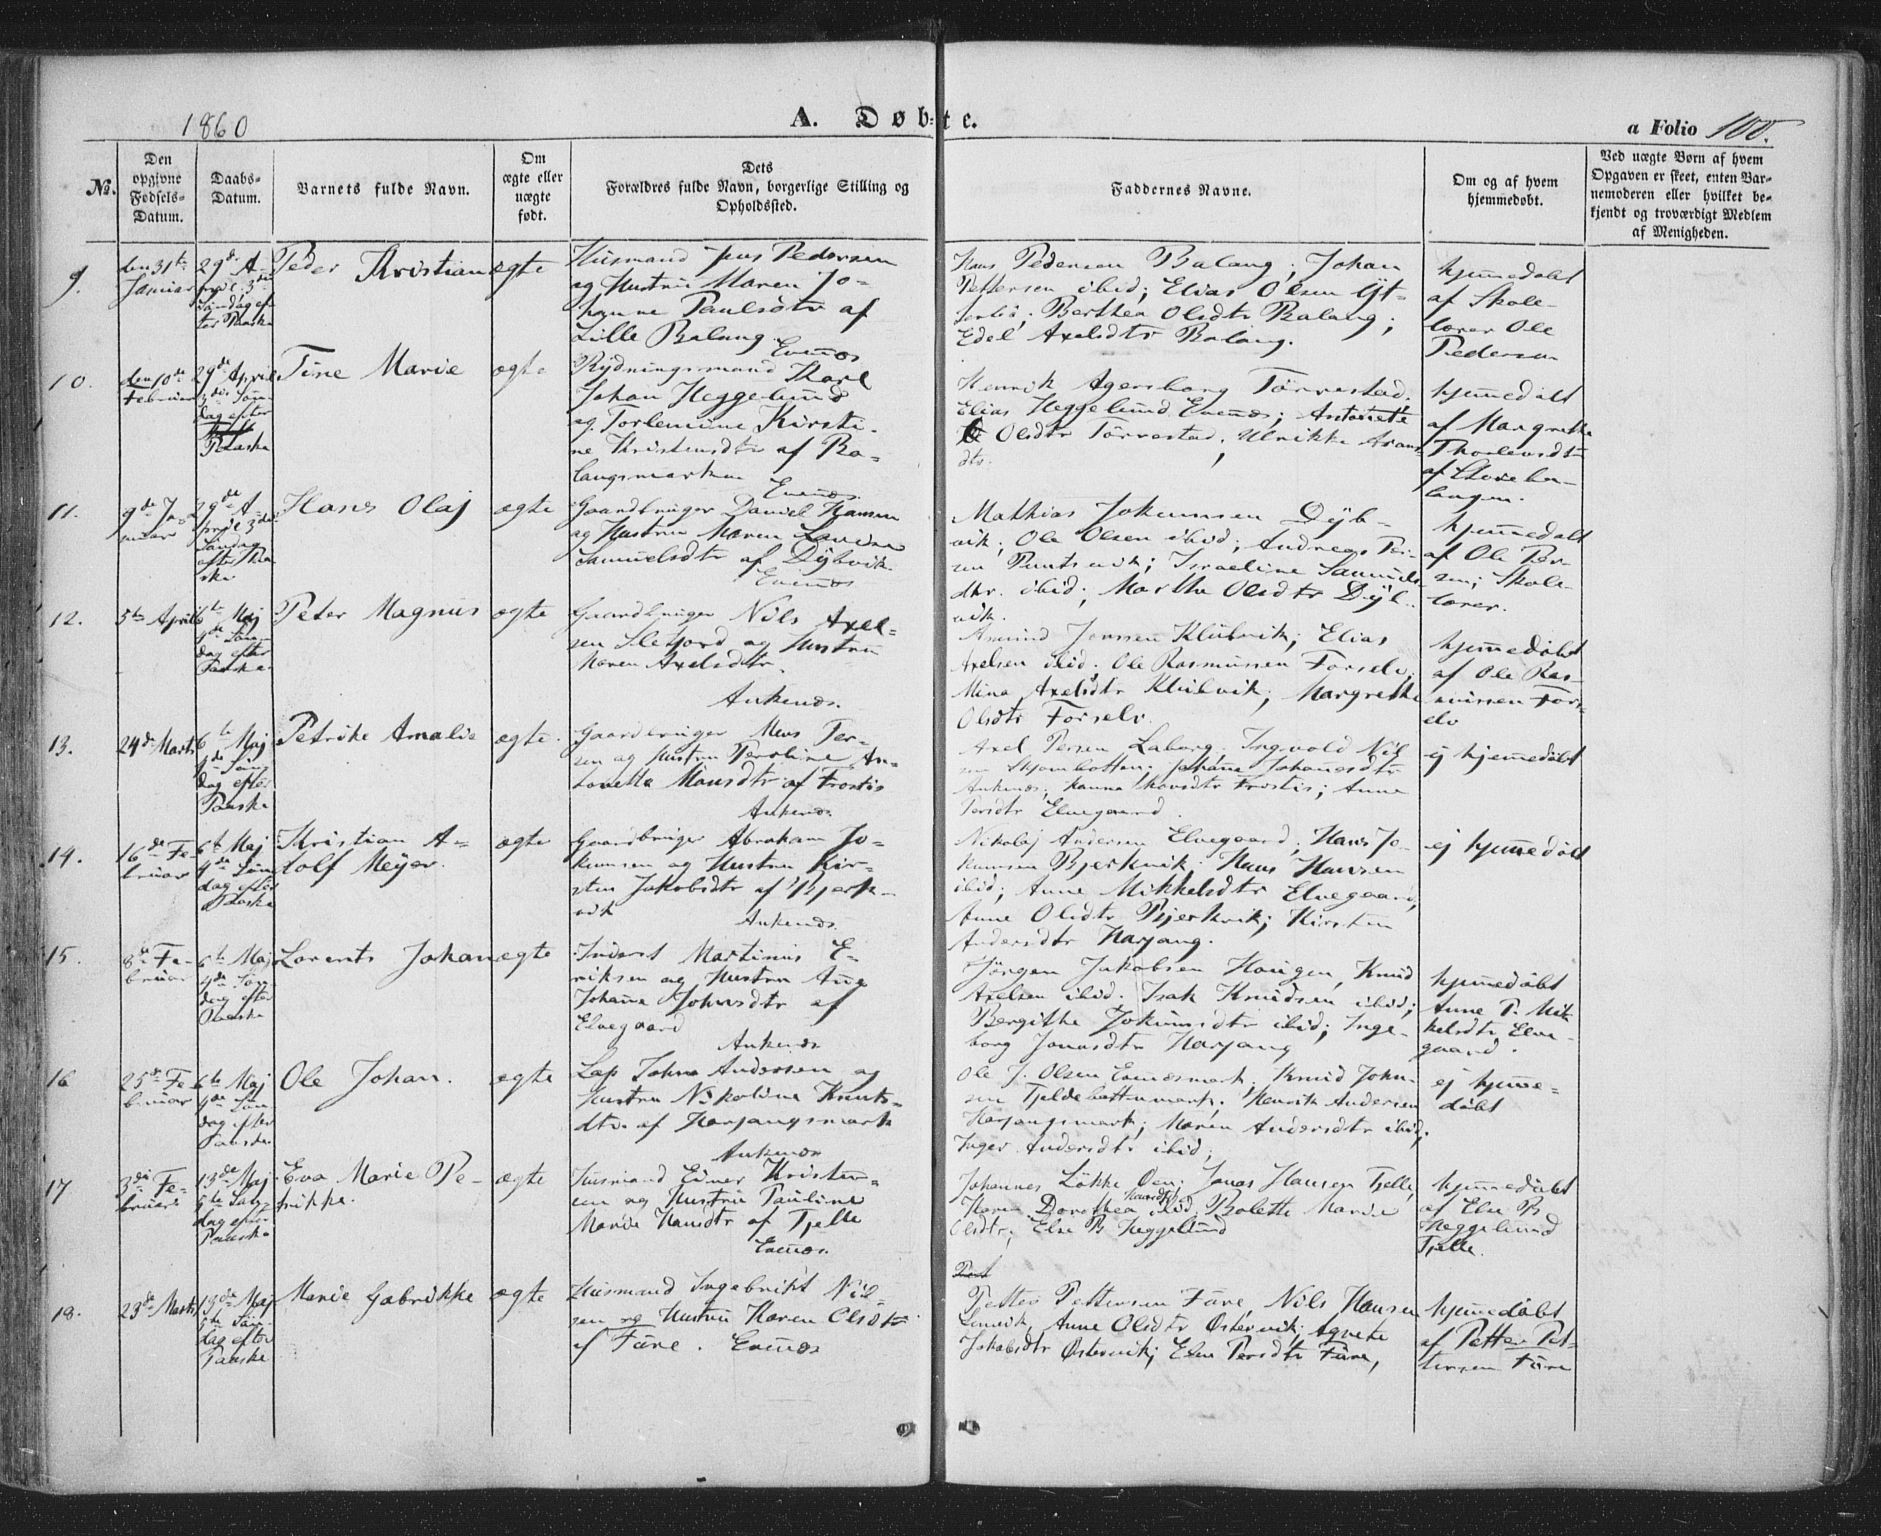 1860
A. Døbte.
a Folio 100.
No.
Den opgivne Fødsels-Datum.
Daabs-Datum.
Barnets fulde Navn.
Om ægte eller uægte født.
Dets Forældres fulde Navn, borgerlige Stilling og Opholdssted.
Faddernes Navne.
Om og af hvem hjemmedøbt.
Ved uægte Børn af hvem Opgaven er skeet, enten Barnemoderen eller hvilket bekjendt og troværdigt Medlem af Menigheden.
9.
den 31te
Januar
29de A-
pril 3die
Søndag ef-
ter Paaske
Peder Kristian
ægte
Husmand Jens Pedersen
og Hustru Maren Jo-
hanne Paulsdtr af
Lille Balang.
Evenæs
Hans Pedersen Balang; Johan
Pettersen ibid; Elias Olsen
Berthea Olsdtr Balang;
Edel Axelsdtr Balang.
hjemmedøbt
af Skole-
lærer Ole
Pedersen
10.
den 10de
Februar
29de April
3die Søn-
dag efter
Paaske
Tine Marie
ægte
Rydningsmand Karl
Johan Heggelund
og Torlenine Kirsti-
ne Kristensdtr af Ba-
langsmarken
Evenæs
Henrik Agersborg Tørrestad;
Elias Heggelund Evenæs; Antonette
Olsdtr Tørrestad; Ulrikke
dtr.
hjemmedøbt
af Margrethe
af Store Ba-
langen.
11.
9de Ja-
nuar
29de A-
pril 3die
Søndag
efter Paa-
ske
Hans Olaj
ægte
Gaardbruger Daniel Hansen
og Hustru Maren
Samuelsdtr af Dybvik
Evenæs
Mathias Jokumsen Dyb-
vik; Ole Olsen ibid; Andreas Per-
sen; Israeline Samuels-
dtr. ibid; Martha Olsdtr Dyb-
vik.
hjemmedøbt
af Ole Per-
sen; Skole-
lærer.
12.
5te April
6te Maj
4de Søn-
dag efter
Paaske
Peter Magnus
ægte
Gaardbruger Nils Axel-
sen Sletjord og Hustru
Maren Axelsdtr.
Ankenæs.
Amund Jenssen Klubvik; Elias
Axelsen ibid. Ole Rasmussen Forselv.
Mina Axelsdtr Klubvik; Margrethe
Olsdtr Forselv.
hjemmedøbt
af Ole Ras-
mussen Fors-
elv
13.
24de Marts
6te Maj
4de Søn-
dag efter
Paaske
Petrike Amalie
ægte.
Gaardbruger Mons Per-
sen og Hustru Peroline An-
tonette Monsdtr af Trostis
Ankenæs
Axel Persen Laberg. Ingvold Nil-
sen
Ankenæs; Hanna Monsdtr Trostis; Anne
Persdtr Elvegaard.
ej hjemmedøbt
14.
16de Fe-
bruar
6te Maj
4de Søn-
dag efter
Paaske
Kristian A-
dolf Meyer.
ægte
Gaardbruger Abraham Jo-
kumsen og Hustru Kir-
sten Jakobsdtr af Bjerk-
vik
Ankenæs.
Nikolaj Andersen Elvegaard; Hans Jo-
kumsen Bjerkvik; Hans Hansen
ibid; Anne Mikkelsdtr Elvegaard;
Anne Olsdtr Bjerkvik; Kirsten
Andersdtr Harjang.
ej hjemmedøbt
15.
8de Fe-
bruar
6te Maj
4de Søn-
dag efter
Paaske
Lorents Johan
ægte
Inderst Martinus E-
riksen og Hustru Ane
Johanna Johnsdtr af
Elvegaard
Ankenæs
Jørgen Jakobsen Haugen, Knud
Axelsen ibid. Isak Knudsen ibid;
Bergithe Jokumsdtr ibid; Inge-
borg Jonasdtr Harjang
hjemmedøbt
Anne P. Mik-
kelsdtr Elve-
gaard.
16
25de Fe-
bruar
6te Maj
4de Søn-
dag efter
Paaske
Ole Johan.
ægte
Lap Johna Andersen og
Hustru Nikoline Knuts-
dtr. af Harjangsmark
Ankenæs
Ole J. Olsen Evenæsmark; Knud John-
sen Fjeldebottenmark; Henrik Andersen
Harjangsmark; Maren Andersdtr ibid;
Inger Andersdtr ibid;
ej hjemme-
døbt
17
3die Fe-
bruar
13de Maj
5te Søn-
dag efter
Paaske
Eva Marie Pe-
trikke.
ægte
Husmand Einer Kristen-
sen og Hustru Pauline
Marie Hansdtr af Tjelle
Evenæs.
Johannes Løkke Øen; Jonas Hansen Tjelle;
Karen Dorothea Hansdtr ibid; Bolette Marie
Olsdtr; Else B Heggelund
hjemmedøbt
af Else B
Heggelund
Tjelle.
18.
23de Marts
13de Maj
5te Søn-
dag efter
Paaske
Marie Gabrikke
ægte
Husmand Ingebrikt Nil-
sen og Hustru Karen Olsdtr
af Fure. Evenæs
Petter Pettersen Fure, Nils Hansen
Lenvik, Anne Olsdtr Østervik; Agnete
Jakobsdtr Østervik; Else Persdtr Fure,
hjemmedøbt
af Petter Pet-
tersen Fure